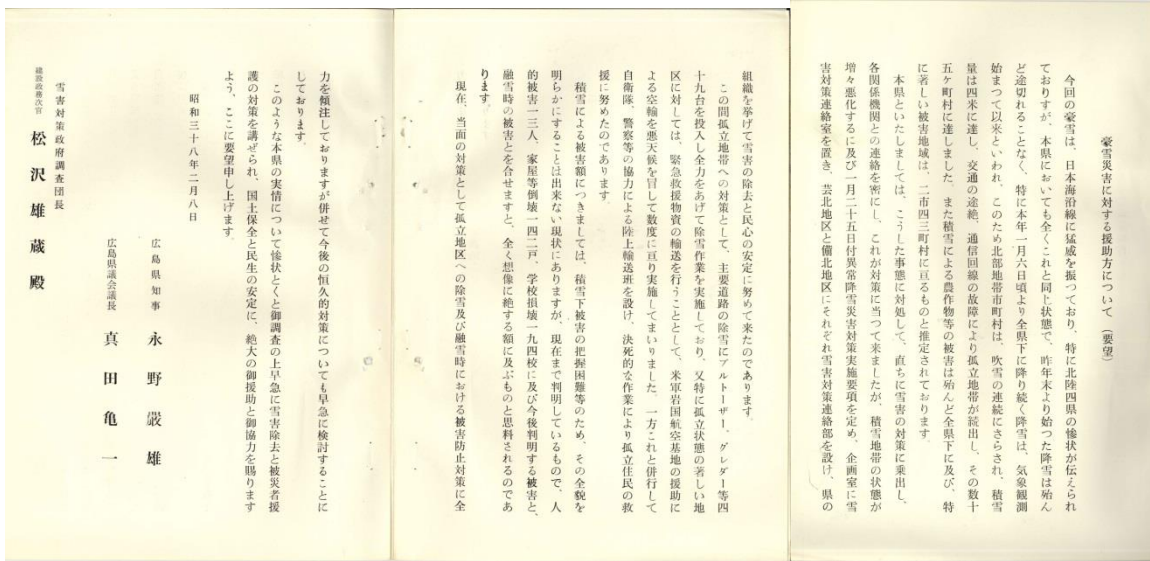 豪雪災害に対する援助方について (要望)
今回の豪雪は、日本海沿線に猛威を振つており、特に北陸四県の惨状が伝えられ
ておりすが、本県においても全くこれと同じ状態で、昨年末より始つた降雪は殆ん
ど途切れることなく、特に本年一月六日頃より全県下に降り続く降雪は、気象観測
始まつて以来といわれ、このため北部地帯市町村は、吹雪の連続にさらされ、積雪
量は四米に達し、交通の途絶、通信回線の故障により孤立地帯が続出し、その数十
五ヶ町村に達しました。また積雪による農作物等の被害は殆んど全県下に及び、特
に著しい被害地域は、二市四三町村に亘るものと推定されております。
本県といたしましては、こうした事態に対処して、直ちに雪害の対策に乗出し、
各関係機関との連絡を密にし、これが対策に当つて来ましたが、積雪地帯の状態が
増々悪化するに及び一月二十五日付異常降雪災害対策実施要項を定め、企画室に雪
害対策連絡室を置き、芸北地区と備北地区にそれぞれ雪害対策連絡部を設け、県の
組織を挙げて雪害の除去と民心の安定に努めて来たのであります。
この間孤立地帯への対策として、主要道路の除雪にブルトーザー、グレダー等四
十九台を投入し全力をあげて除雪作業を実施しており、又特に孤立状態の著しい地
区に対しては、緊急救援物資の輸送を行うこととして、米軍岩国航空基地の援助に
よる空輸を悪天候を冒して数度に亘り実施してまいりました。一方これと併行して
自衛隊、警察等の協力による陸上輸送班を設け、決死的な作業により孤立住民の救
援に努めたのであります。
積雪による被害額につきましては、積雪下被害の把握困難等のため、その全貌を
明らかにすることは出来ない現状にありますが、現在まで判明しているもので、人
的被害一三人、家屋等倒壊一四二戸、学校損壊一九四校に及び今後判明する被害と、
融雪時の被害とを合せますと、全く想像に絶する額に及ぶものと思料されるのであ
ります。
現在、当面の対策として孤立地区への除雪及び融雪時における被害防止対策に全
力を傾注しておりますが併せて今後の恒久的対策についても早急に検討することに
しております。
このような本県の実情について惨状とくと御調査の上早急に雪害除去と被災者援
護の対策を講ぜられ、国土保全と民生の安定に、絶大の御援助と御協力を賜ります
よう、ここに要望申し上げます。
昭和三十八年二月八日
広島県知事 永野嚴雄
広島県議会議長 真田亀一
雪害対策政府調査団長
建設政務次官 松沢雄蔵殿